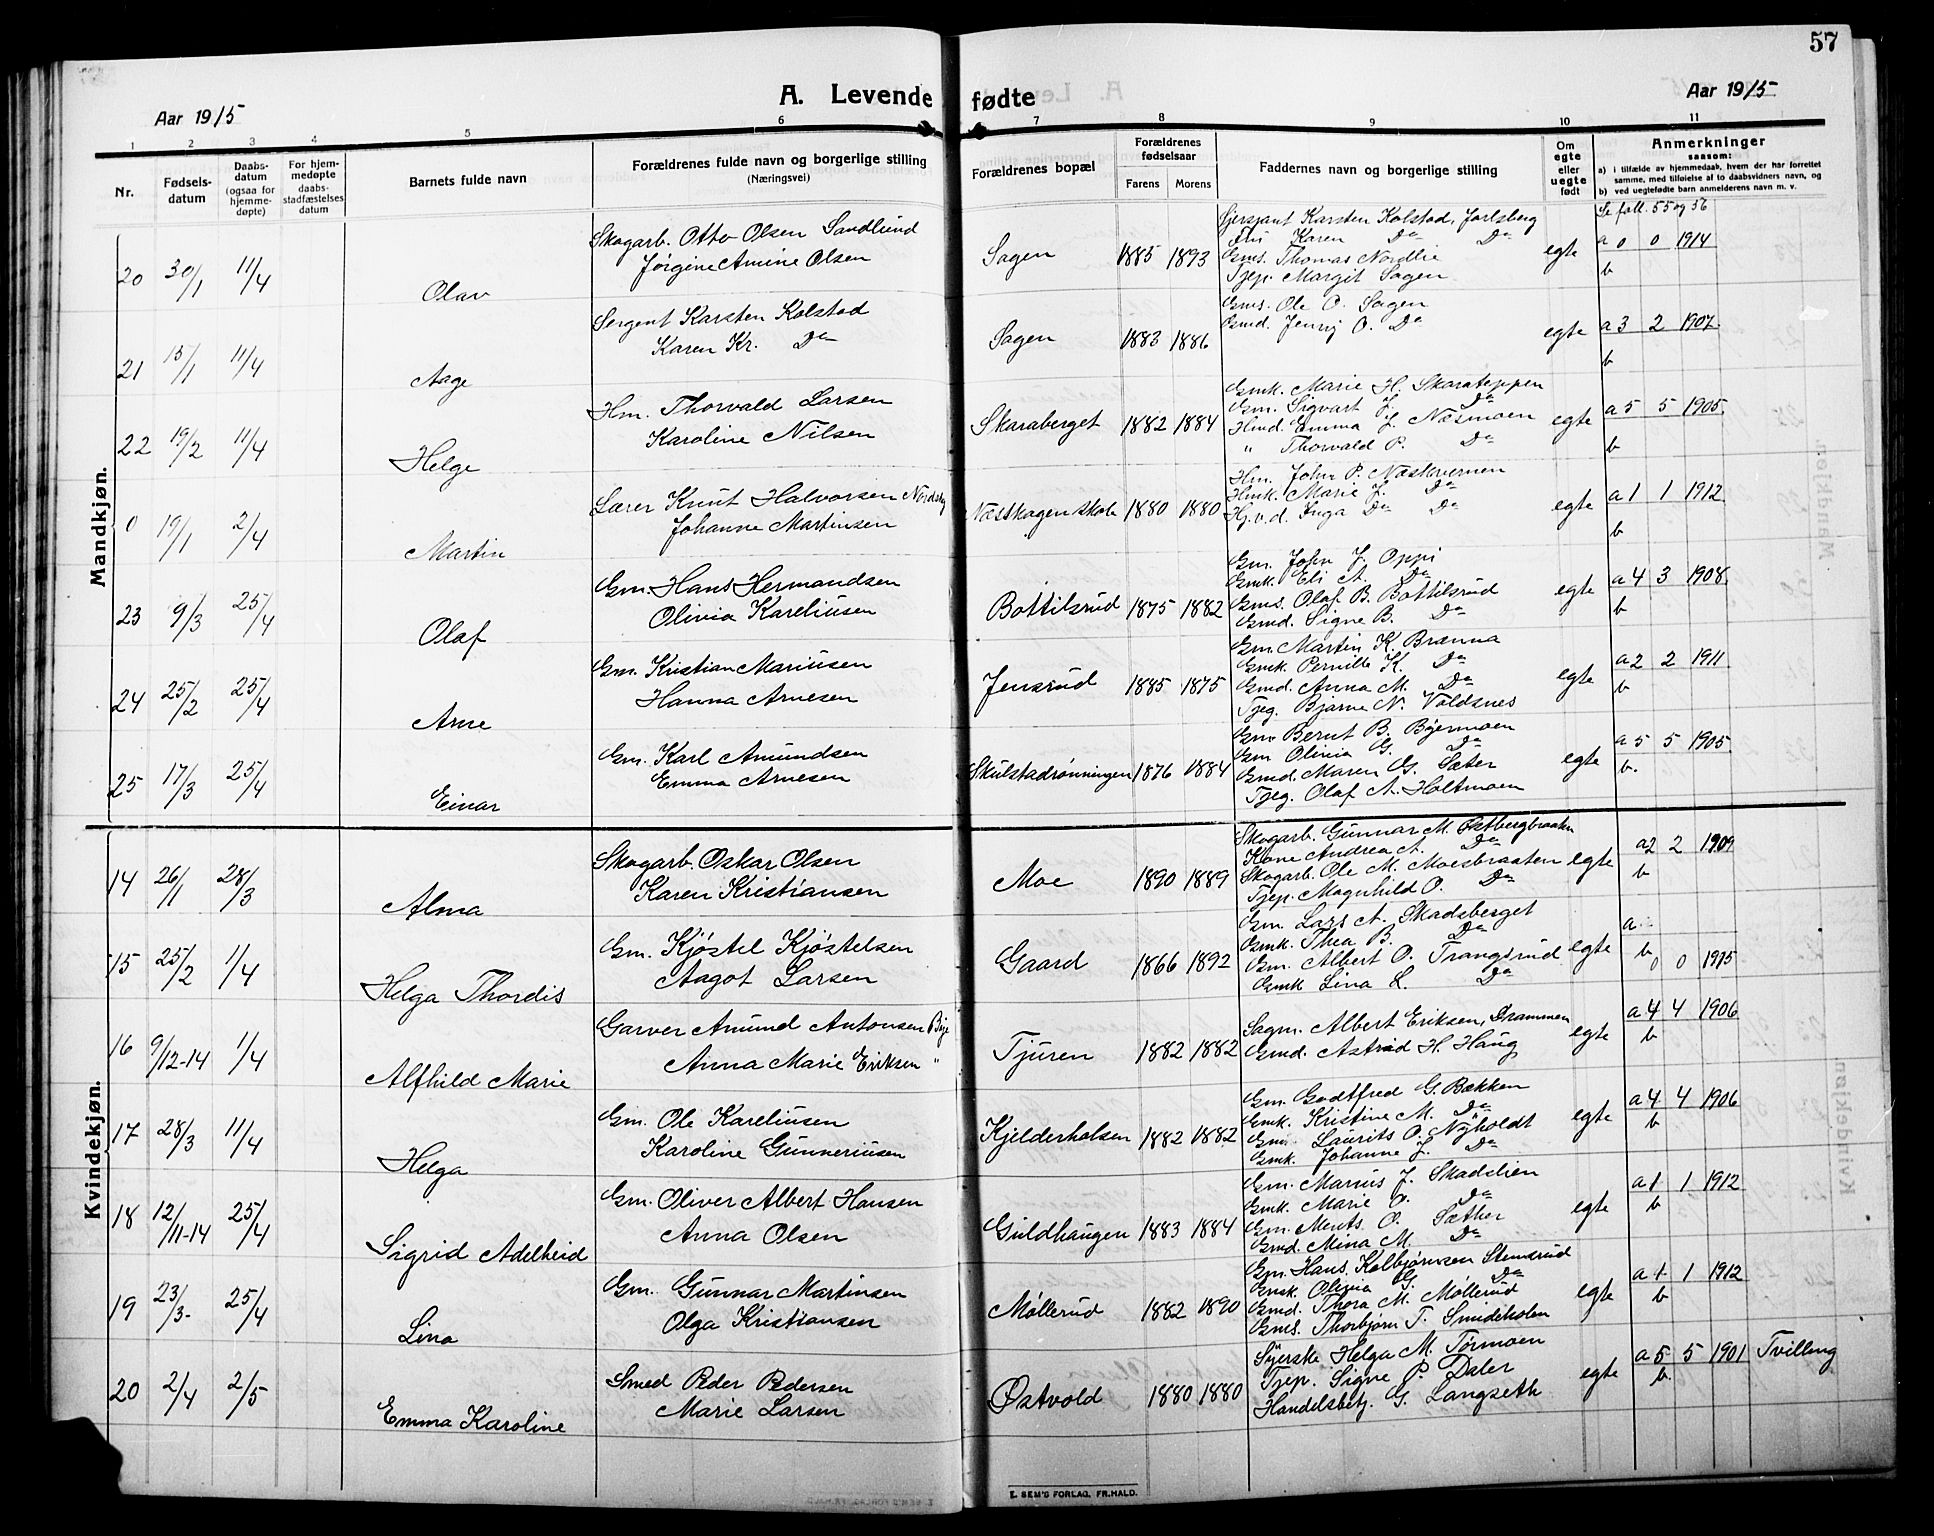 57
A. Levende fødte
Aar 1915
Aar 1915
1 2 3 4 5 6 7 8 9 10 11
Nr.
Fødsels-datum
Daabs-datum (ogsaa for hjemme-døpte)
For hjem-medøpte daabs-stadfæstelses datum
Barnets fulde navn
Forældrenes fulde navn og borgerlige stilling
(Næringsvei)
Forældrenes bopæl
Forældrenes fødselsaar
Farens Morens
Faddernes navn og borgerlige stilling
Om egte eller uegte født
Anmerkninger
saasom:
a) i tilfælde av hjemmedaab, hvem der har forrettet samme, med tilføielse af to daabsvidners navn, og
b) ved uegtefødte barn anmelderens navn m. v.
Se foll. 55 og 56
Mandkjøn.
20 30/1 11/4 Olav
Skogarb. Otto Olsen Sandlund
Jørgine Amine Olsen
Sagen 1885 1893
Sjersjant Karsten Kolstad, Jarlsberg
Fru Karen Do Do
Gms. Thomas Nordlie
Tjep. Margit Sagen
egte a 0 0 1914
b
21 15/1 11/4 Aage
Sergent Karsten Kolstad
Karen Kr. Do
Sagen 1883 1886
Gms. Ole O. Sagen
Gmd. Jenny O. Do
egte a 3 2 1907
b
22 19/2 11/4 Helge
Hm. Thorvald Larsen
Karoline Nilsen
Skaraberget 1882 1884
Gmk. Marie H. Skarateppen
Gm. Sigvart J. Do
Hmd. Emma J. Næsmoen
" Thorvald P. Do
egte a 5 5 1905
b
0 19/1 2/4 Martin
Lærer Knut Halvorsen
Johanne Martinsen
Næsskogen skole 1880 1880
Hm. John P. Næskvernen
Hmk. Marie J. Do
Hj.v.d. Inga Do Do
egte a 1 1 1912
b
23 9/3 25/4 Olaf
Gm. Hans Hermandsen
Olivia Kareliusen
Bottilsrud 1875 1882
Gm. John J. Oppi
Gmk. Eli A. Do
Gms. Olaf B. Bottilsrud
Gmd. Signe B. Do
egte a 4 3 1908
b
24 25/2 25/4 Arne
Gm. Kristian Mariusen
Hanna Arnesen
Jensrud 1885 1875
Gm. Martin K. Brænna
Gmk. Pernille K. Do
Gmd. Anna M. Do
Tjeg. Bjarne N. Voldsnes
egte a 2 2 1911
b
25 17/3 25/4 Einar
Gm. Karl Amundsen
Emma Arnesen
Skulstadrønningen 1876 1884
Gm. Bernt B. Byermoen
Gm Olivia G. Do
Gmd. Maren G. Sæter
Tjeg. Olaf A. Holtmoen
egte a 5 5 1905
b.
Kvindekjøn.
14 26/1 28/3 Alma
Skogarb. Oskar Olsen
Karen Kristiansen
Moe 1890 1889
Skogarb. Gunnar M. Østbergbraaten
Kone Andrea A. Do
Skogarb. Ole M. Moesbraaten
Tjep. Magnhild O. Do
egte a 2 2 1909
b
15 25/2 1/4 Helga Thordis
Gm. Kjøstel Kjøstelsen
Aagot Larsen
Gaard 1866 1892
Gm. Lars A. Skadsberget
Gmk. Thea B. Do
Gm. Albert O. Trangsrud
Gmk Lina L. Do
egte a.
b 0 0 1915
16 9/12-14 1/4 Alfhild Marie
Garver Amund Antonsen Bye
Anna Marie Eriksen "
Tjuren 1882 1882
Sagm. Albert Eriksen, Drammen
Gmd. Astrid H. Haug
egte a 4 4 1906
b
17 28/3 11/4 Helga
Gm. Ole Kareliusen
Karoline Gunneriusen
Kjelderholsen 1882 1882
Gm. Godtfred G. Bækken
Gmk. Kristine M. Do
Gm. Laurits O. Nyholdt
Gmk. Johanne J. Do
egte a 4 4 1906
b
18 12/11-14 25/4 Sigrid Adelheid
Gm. Oliver Albert Hansen
Anna Olsen
Guldhaugen 1883 1884
Gm. Marius J. Skadslien
Gmk. Marie O. Do
Gm. Ments O. Sæther
Gmd. Mina M. Do
egte a 1 1 1912
b
19 23/3- 25/4 Lina
Gm. Gunnar Martinsen
Olga Kristiansen
Møllerud 1882 1890
Gm. Hans Kolbjørnsen Stensrud
Gmk. Olivia G. Do
Gmd. Thora M. Møllerud
Gms. Thorbjørn T. Smideholen
egte a 1 1 1912
b
20 2/4 2/5 Emma Karoline
Smed Peder Pedersen
Marie Larsen
Østvold 1880 1880
Syerske Helga M. Tørmoen
Tjep. Signe P. Daler
Handelsbetj. G. Langseth
egte a 5 5 1901 Tvilling
b.
E. SEM'S FORLAG, FR.HALD.